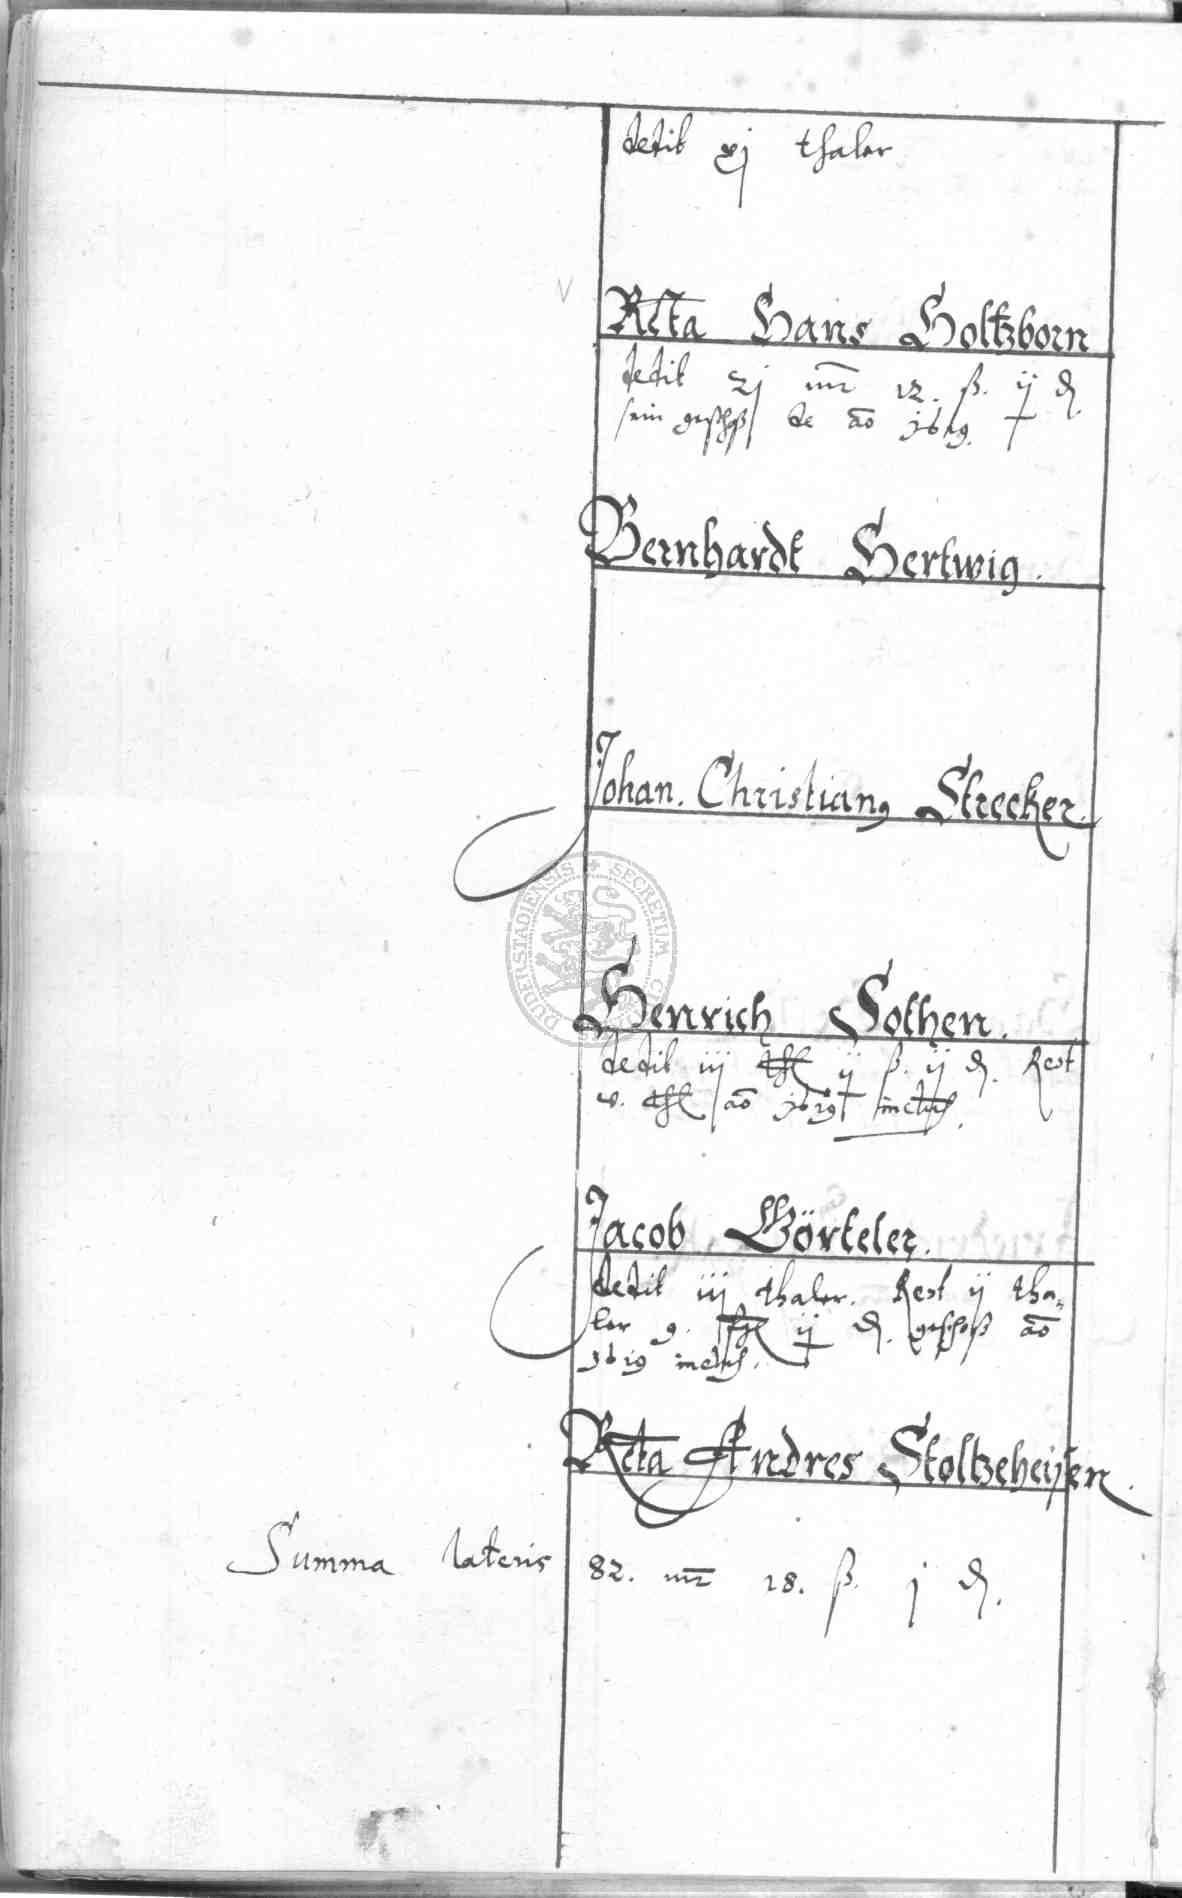 dedit xj thaler
Rcta Hans Holtzborn
dedit xj mr 12. ß. ij d.
sein geschoß de ao 1619.
Bernhardt Hertwig.
Johan. Christiang Strecker.
DUDERSTADIENSIS + SECRETUM
Henrich Sothen.
dedit iij thl ij ß. ij d. Rest
v. thl ao 1619
Jacob Görteler.
dedit iij thaler. Rest ij tha-
ler 9. ij d. geschoß ao
1619
Rcta Andres Stoltzeheisen.
Summa lateris 82. mr 18. ß. j d.